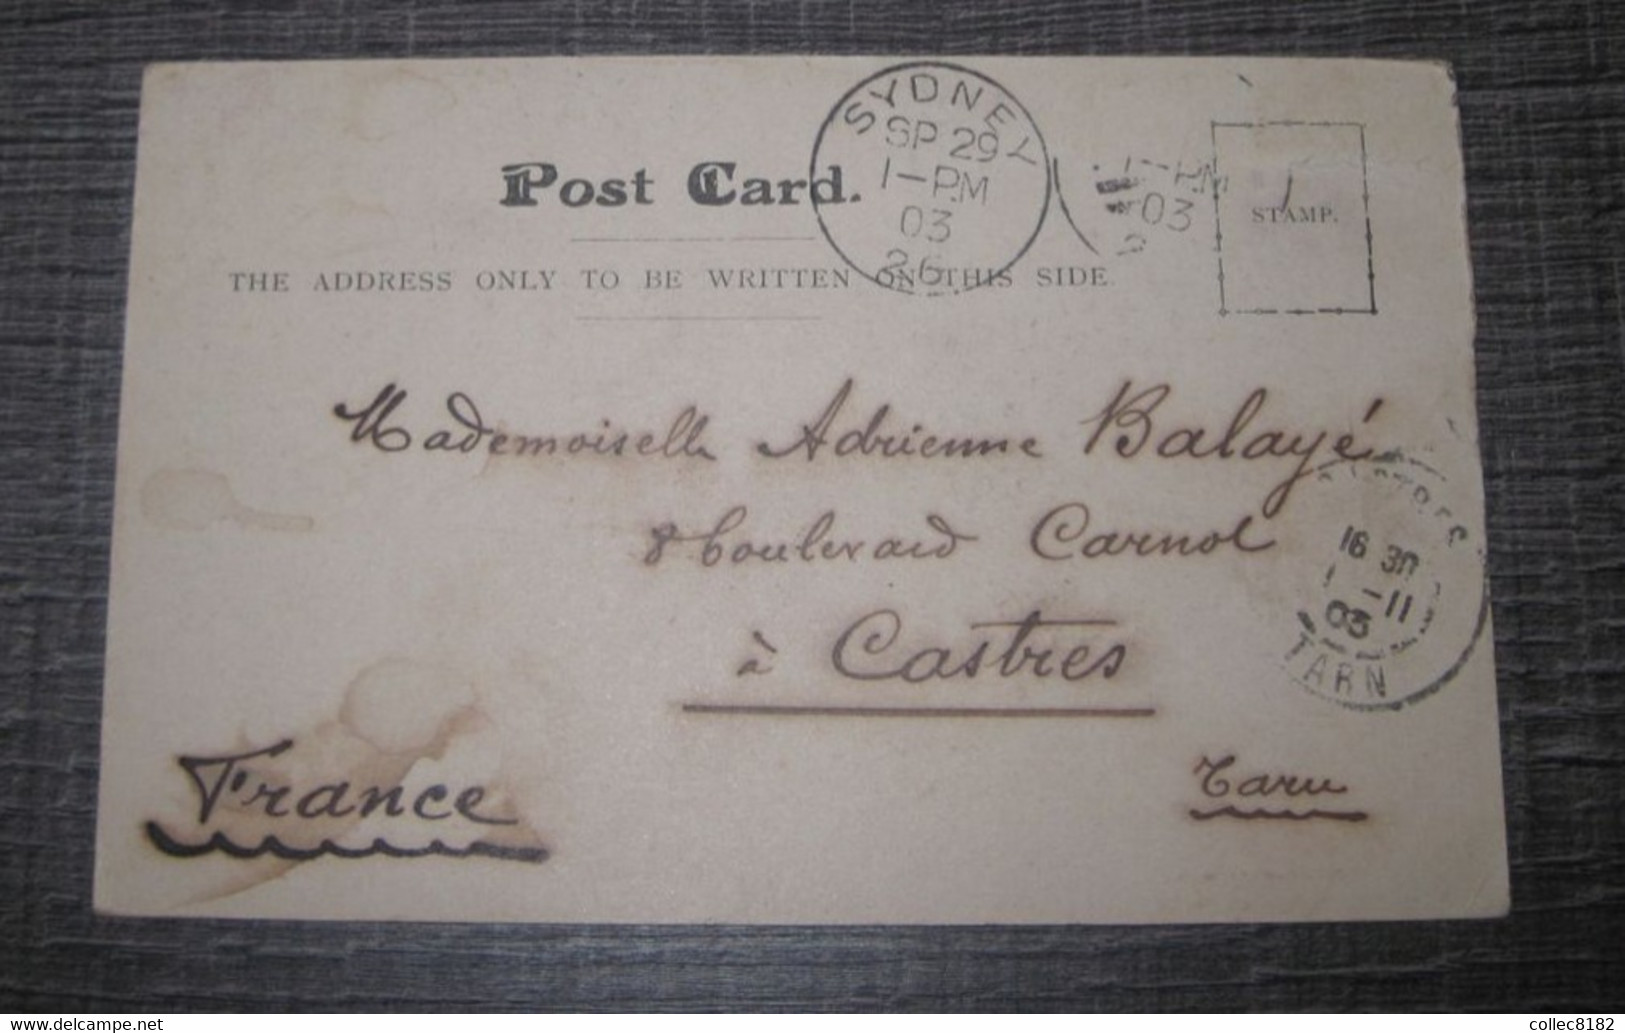 SYDNEY
SP 29
1-PM
03
26
1-PM
03
Post Card.
STAMP.
THE ADDRESS ONLY TO BE WRITTEN ON THIS SIDE.
Mademoiselle Adrienne Balayé
8 boulevard Carnot
à Castres
CASTRES
16 30
1 -11
03
TARN
France
Tarn
collec8182